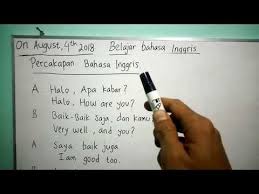 On August, 4th 2018 Belajar bahasa Inggris
Percakapan Bahasa Inggris
A Halo, Apa kabar?
Halo, How are you?
B Baik-Baik saja, dan kamu?
Very well, and you?
A Saya baik juga
I am good too.